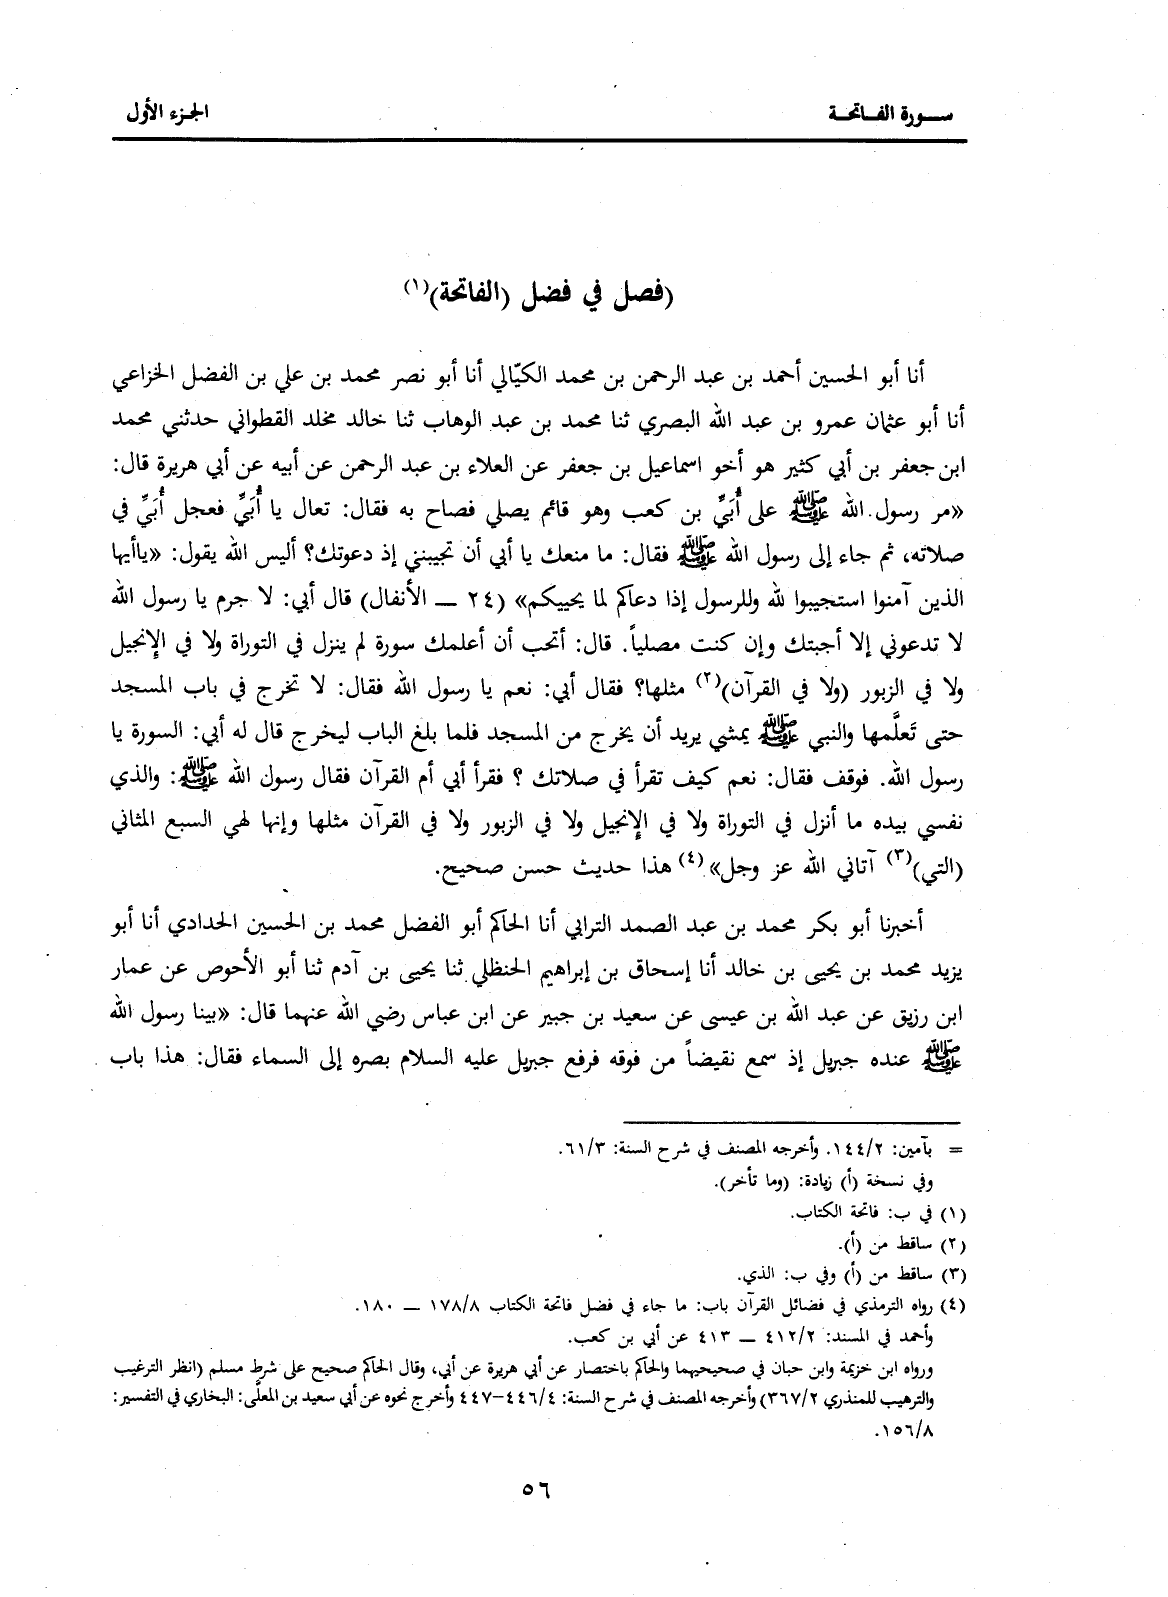 سورة الفاتحة
الجزء الأول
(فصل في فضل (الفاتحة)(١)
أنا أبو الحسين أحمد بن عبد الرحمن بن محمد الكيّالي أنا أبو نصر محمد بن علي بن الفضل الخزاعي
أنا أبو عثمان عمرو بن عبد الله البصري ثنا محمد بن عبد الوهاب ثنا خالد مخلد القطواني حدثني محمد
ابن جعفر بن أبي كثير هو أخو اسماعيل بن جعفر عن العلاء بن عبد الرحمن عن أبيه عن أبي هريرة قال:
«مر رسول الله ﷺ على أُبَيِّ بن كعب وهو قائم يصلي فصاح به فقال: تعال يا أُبَيِّ فعجل أُبَيِّ في
صلاته، ثم جاء إلى رسول الله ﷺ فقال: ما منعك يا أبي أن تجيبني إذ دعوتك؟ أليس الله يقول: «ياأيها
الذين آمنوا استجيبوا لله وللرسول إذا دعاكم لما يحييكم» (٢٤ ــ الأنفال) قال أبي: لا جرم يا رسول الله
لا تدعوني إلا أجبتك وإن كنت مصلياً. قال: أتحب أن أعلمك سورة لم ينزل في التوراة ولا في الإنجيل
ولا في الزبور (ولا في القرآن)(٢) مثلها؟ فقال أبي: نعم يا رسول الله فقال: لا تخرج في باب المسجد
حتى تَعلَّمها والنبي ﷺ يمشي يريد أن يخرج من المسجد فلما بلغ الباب ليخرج قال له أبي: السورة يا
رسول الله. فوقف فقال: نعم كيف تقرأ في صلاتك ؟ فقرأ أبي أم القرآن فقال رسول الله ﷺ: والذي
نفسي بيده ما أنزل في التوراة ولا في الإنجيل ولا في الزبور ولا في القرآن مثلها وإنها لهي السبع المثاني
(التي)(٣) آتاني الله عز وجل»(٤) هذا حديث حسن صحيح.
أخبرنا أبو بكر محمد بن عبد الصمد الترابي أنا الحاكم أبو الفضل محمد بن الحسين الحدادي أنا أبو
يزيد محمد بن يحيى بن خالد أنا إسحاق بن إبراهيم الحنظلي ثنا يحيى بن آدم ثنا أبو الأحوص عن عمار
ابن رزيق عن عبد الله بن عيسى عن سعيد بن جبير عن ابن عباس رضي الله عنهما قال: «بينا رسول الله
ﷺ عنده جبريل إذ سمع نقيضاً من فوقه فرفع جبريل عليه السلام بصره إلى السماء فقال: هذا باب
= بآمين: ١٤٤/٢. وأخرجه المصنف في شرح السنة: ٦١/٣.
وفي نسخة (أ) زيادة: (وما تأخر).
(١) في ب: فاتحة الكتاب.
(٢) ساقط من (أ).
(٣) ساقط من (أ) وفي ب: الذي.
(٤) رواه الترمذي في فضائل القرآن باب: ما جاء في فضل فاتحة الكتاب ١٧٨/٨ ــ ١٨٠.
وأحمد في المسند: ٤١٢/٢ ــ ٤١٣ عن أبي بن كعب.
ورواه ابن خزيمة وابن حبان في صحيحيهما والحاكم باختصار عن أبي هريرة عن أبي، وقال الحاكم صحيح على شرط مسلم (انظر الترغيب
والترهيب للمنذري ٣٦٧/٢) وأخرجه المصنف في شرح السنة: ٤٤٦/٤-٤٤٧ وأخرج نحوه عن أبي سعيد بن المعلَّى: البخاري في التفسير:
١٥٦/٨.
٥٦